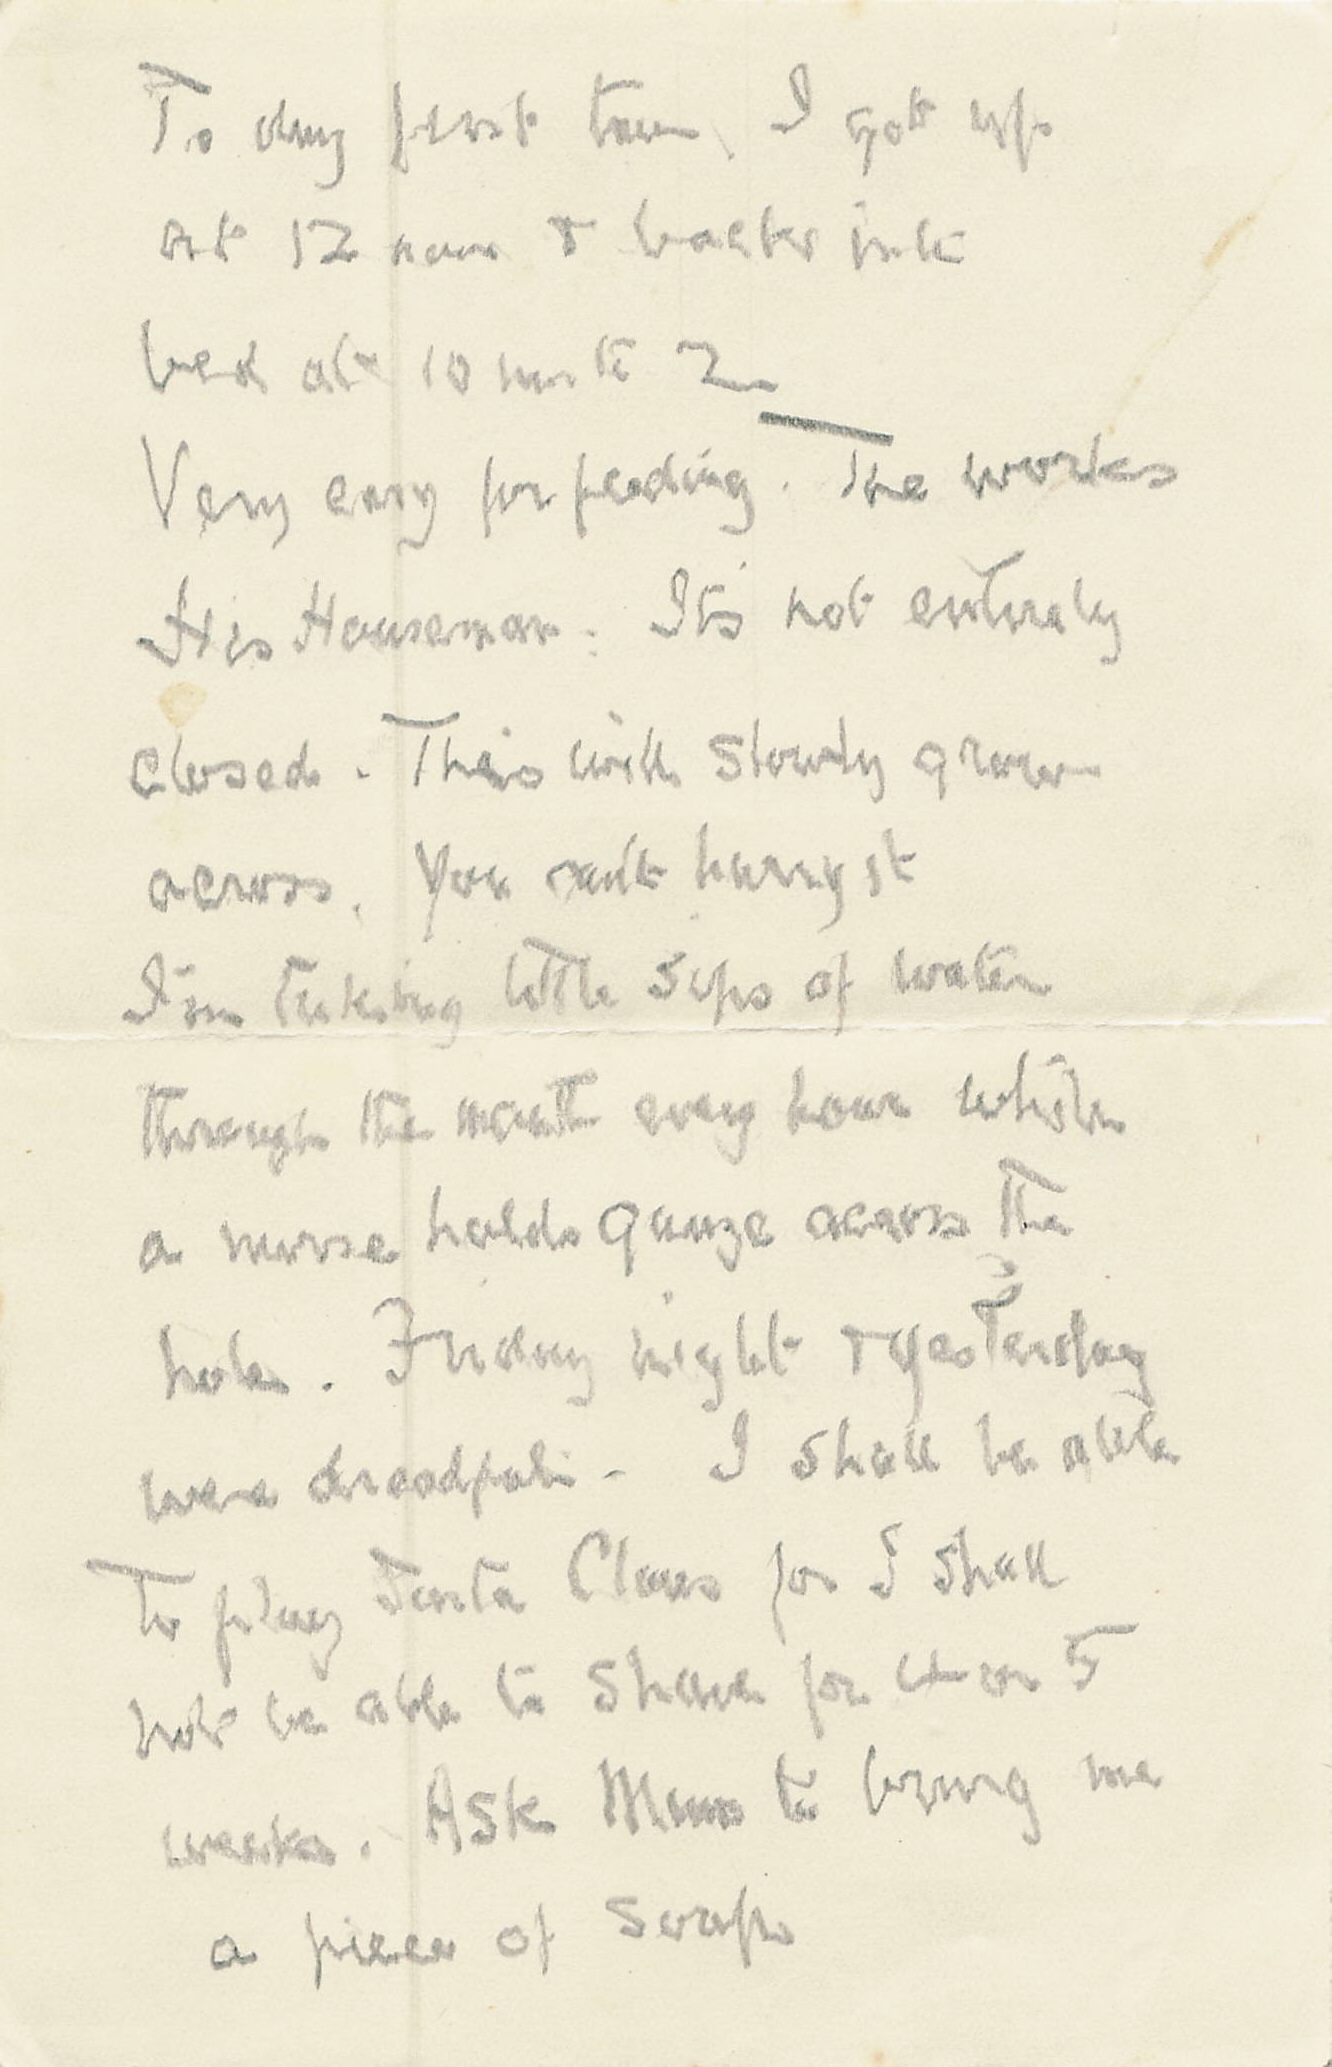 To day first time, I got up
at 12 noon & back into
bed at 10 min to 2
Very easy for feeding. The works
His Houseman: It's not entirely
closed. This will slowly grow
across. You can't hurry it
I'm taking little sips of water
through the mouth every hour while
a nurse holds gauze across the
hole. Friday night & yesterday
were dreadful - I shall be able
to play Santa Claus for I shall
not be able to shave for 4 or 5
weeks. Ask Mum to bring me
a piece of soap